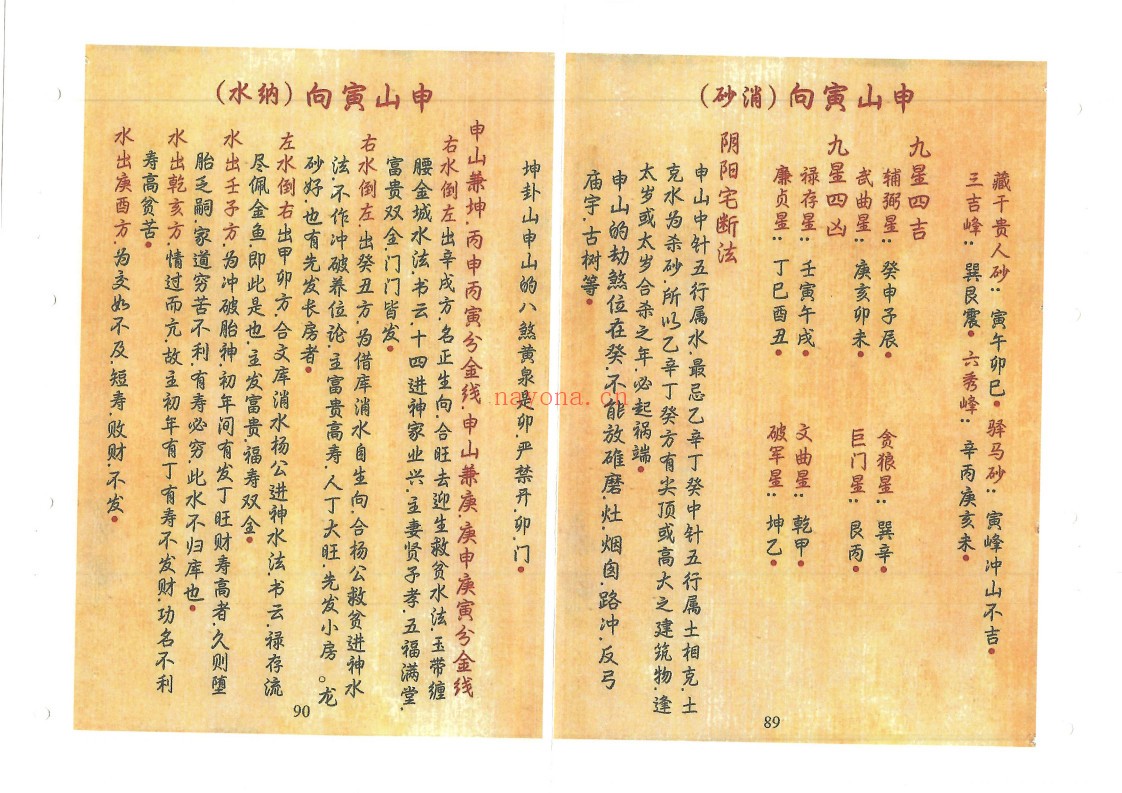 申山寅向（消砂）
藏干贵人砂：寅午卯巳。驿马砂：寅峰冲山不吉。
三吉峰：巽艮震。六秀峰：辛丙庚亥未。
九星四吉
辅弼星：癸申子辰。贪狼星：巽辛。
武曲星：庚亥卯未。巨门星：艮丙。
九星四凶
禄存星：壬寅午戌。文曲星：乾甲。
廉贞星：丁巳酉丑。破军星：坤乙。
阴阳宅断法
申山中针五行属水.最忌乙辛丁癸中针五行属土相克.土
克水为杀砂.所以乙辛丁癸方有尖顶或高大之建筑物.逢
太岁或太岁合杀之年.必起祸端。
申山的劫煞位在癸.不能放碓磨.灶.烟囱.路冲.反弓
庙宇.古树等。
89
申山寅向（纳水）
坤卦山申山的八煞黄泉是卯.严禁开.卯.门。
申山兼坤.丙申丙寅分金线.申山兼庚.庚申庚寅分金线
右水倒左.出辛戌方.名正生向.合旺去迎生救贫水法.玉带缠
腰金城水法.书云.十四进神家业兴.主妻贤子孝.五福满堂.
富贵双全.门门皆发。
右水倒左.出癸丑方.为借库消水自生向.合杨公救贫进神水
法.不作冲破养位论.主富贵高寿.人丁大旺.先发小房。龙
砂好.也有先发长房者。
左水倒右.出甲卯方.合文库消水杨公进神水法.书云.禄存流
尽佩金鱼.即此是也.主发富贵.福寿双全。
水出壬子方.为冲破胎神.初年间有发丁旺财寿高者.久则堕
胎乏嗣.家道穷苦不利.有寿必穷.此水不归库也。
水出乾亥方.情过而亢.故主初年有丁有寿不发财.功名不利
寿高贫苦。
水出庚酉方.为交如不及.短寿.败财.不发。
90
nayona.cn